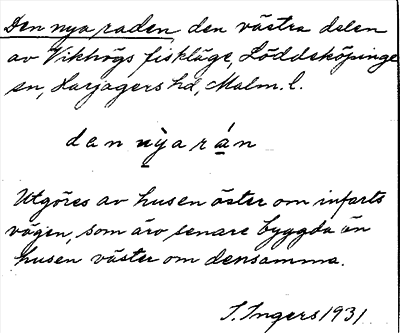 Den nya raden, den västra delen
av Vikhögs fiskläge, Löddeköpinge
sn, Harjagers hd, Malm. l.
den nỳa rán
Utgöres av husen öster om infarts
vägen, som äro senare byggda än
husen väster om densamma.
S. Ingers 1931